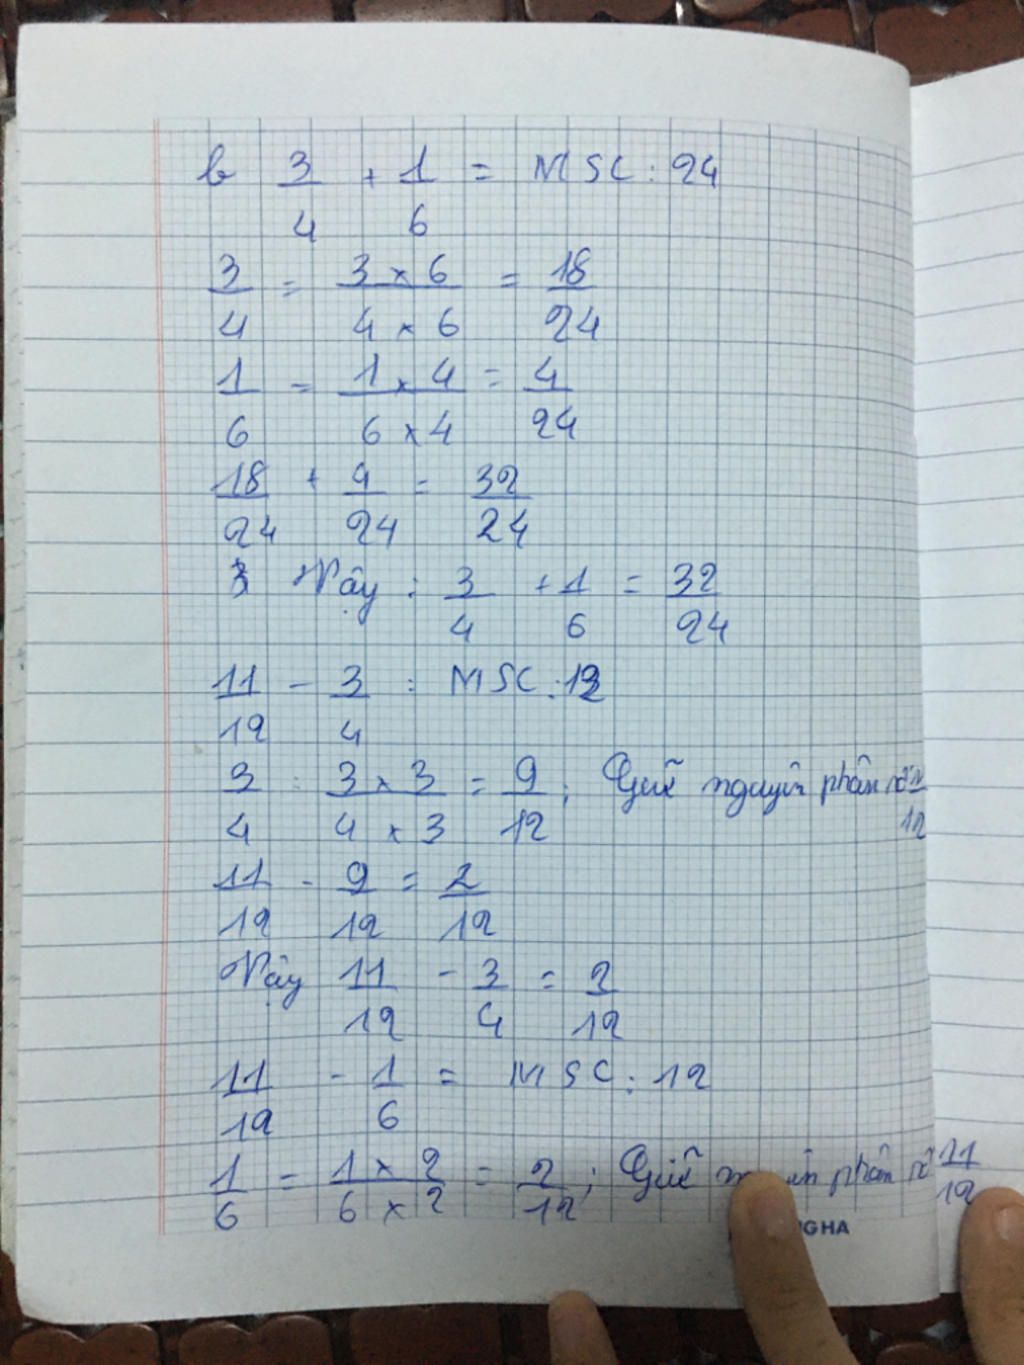 b 3/4 + 1/6 = MSC: 24
3/4 = 3 x 6 / 4 x 6 = 18/24
1/6 = 1 x 4 / 6 x 4 = 4/24
18/24 + 4/24 = 32/24
Vậy : 3/4 + 1/6 = 32/24
11/12 - 3/4 : MSC: 12
3/4 : 3 x 3 / 4 x 3 = 9/12 ; Giữ nguyên phân số 11/12
11/12 - 9/12 = 2/12
Vậy 11/12 - 3/4 = 2/12
11/12 - 1/6 = MSC: 12
1/6 = 1 x 2 / 6 x 2 = 2/12 ; Giữ phân số 11/12
NGHA